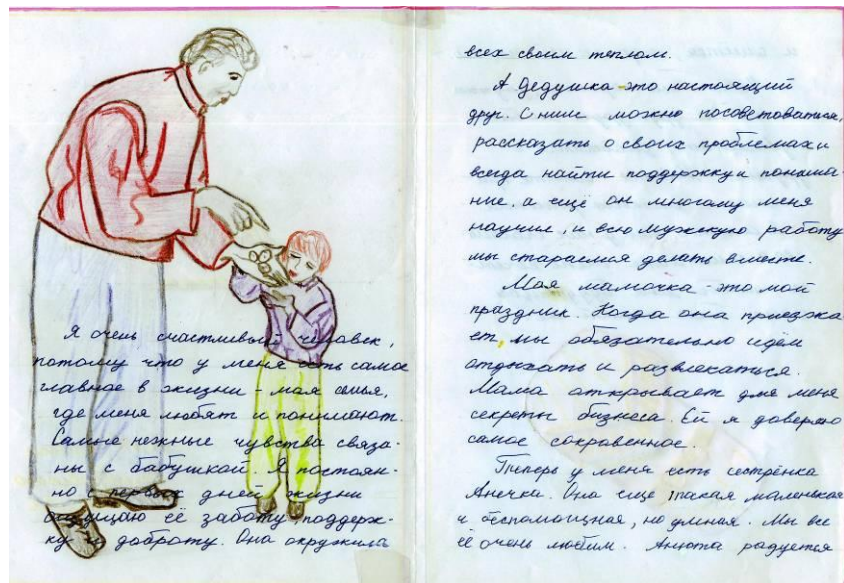 Я очень счастливый человек,
потому что у меня есть самое
главное в жизни - моя семья,
где меня любят и понимают.
Самые нежные чувства связа-
ны с бабушкой. Я постоян-
но с первых дней жизни
ощущаю её заботу, поддерж-
ку и доброту. Она окружила
всех своим теплом.
А дедушка это настоящий
друг. С ним можно посоветоваться,
рассказать о своих проблемах и
всегда найти поддержку и понима-
ние, а ещё он многому меня
научил, и всю мужскую работу
мы стараемся делать вместе.
Моя мамочка - это мой
праздник. Когда она приезжа
ет, мы обязательно идём
отдыхать и развлекаться.
Мама открывает для меня
секреты бизнеса. Ей я доверяю
самое сокровенное.
Теперь у меня есть сестрёнка
Анечка. Она еще такая маленькая
и беспомощная, но умная. Мы все
её очень любим. Анюта радуется